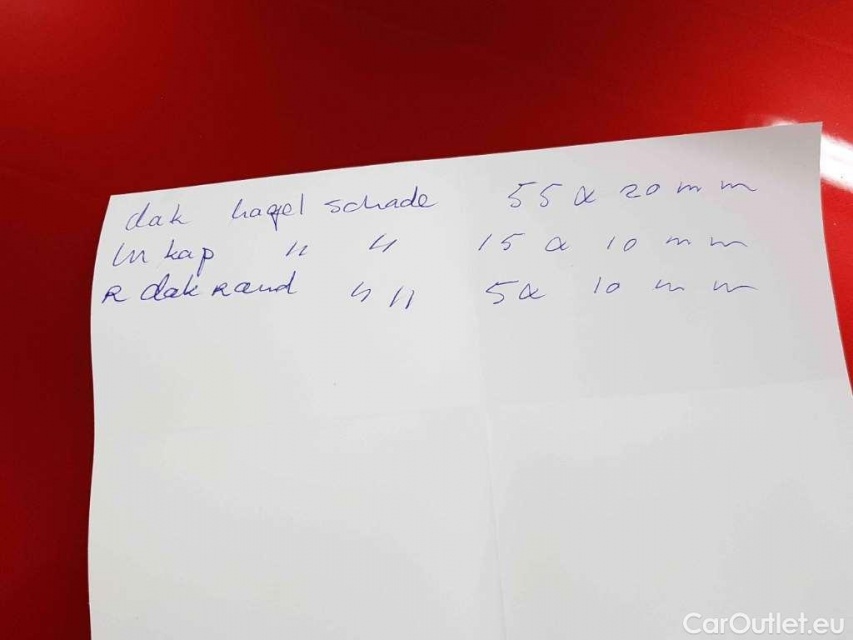 dak hagel schade 55 a 20 mm
m kap " " 15 a 10 mm
R dak rand " " 5 a 10 mm
CarOutlet.eu